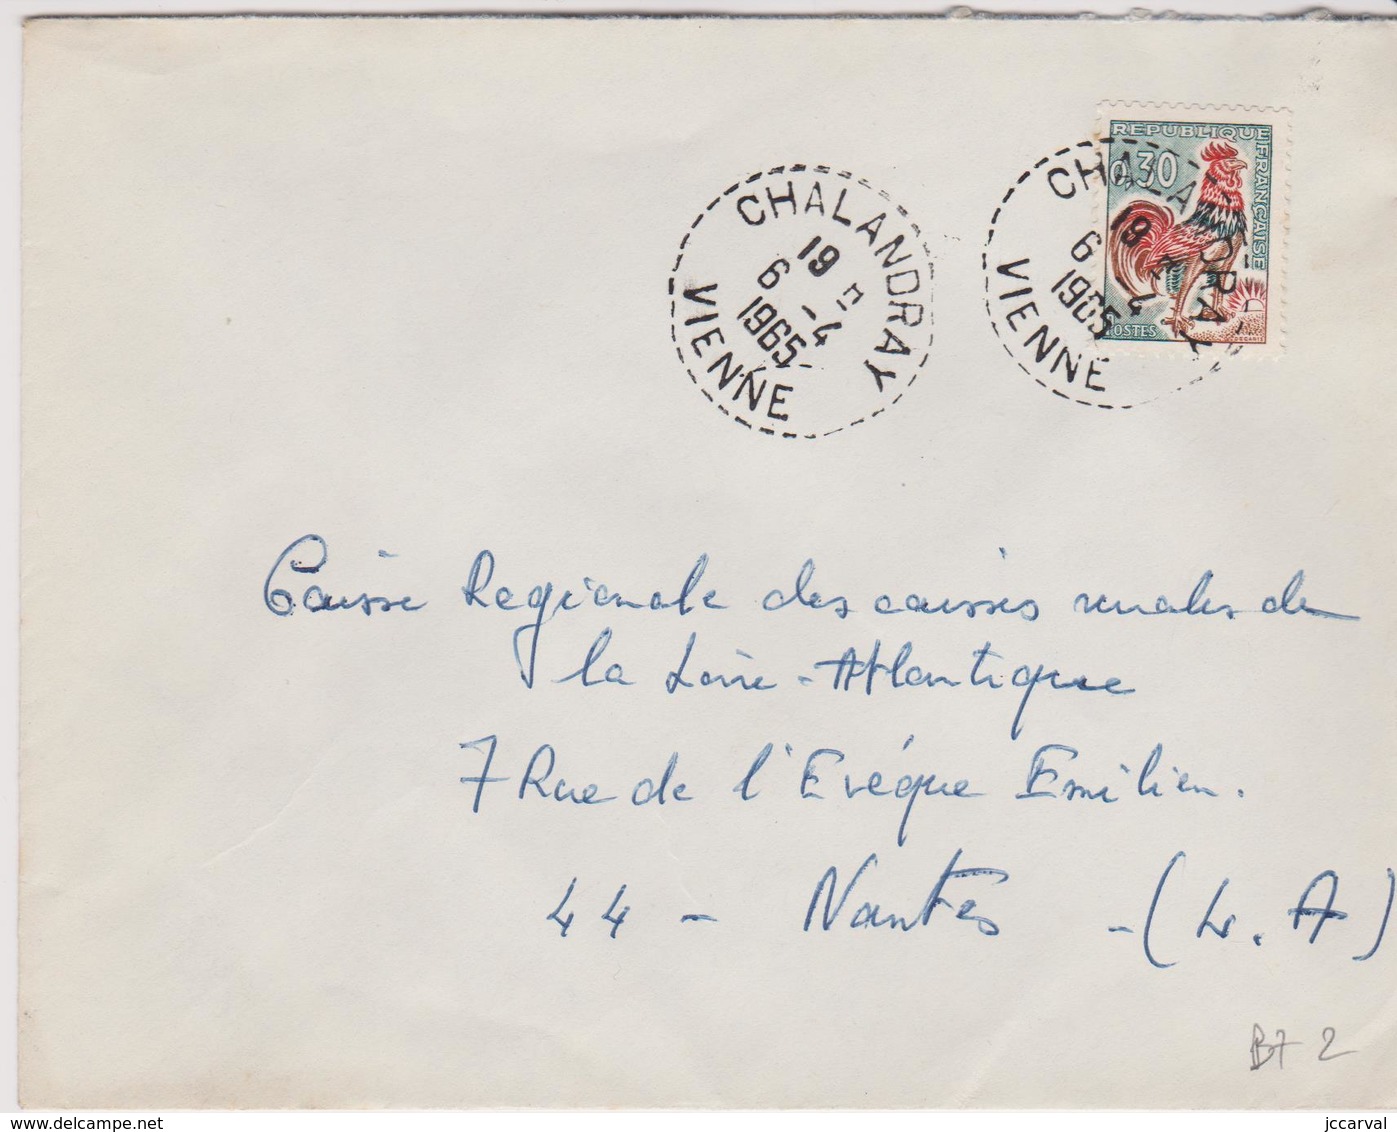 CHALANDRAY
19 H
6 - 4
1965
VIENNE
REPUBLIQUE FRANÇAISE
0,30
POSTES
DECARIS
CHALANDRAY
19 H
6 - 4
1965
VIENNE
Caisse Regionale des caisses rurales de
la Loire-Atlantique
7 Rue de l'Evéque Emilien.
44 - Nantes - (L.A)
B7 2
www.delcampe.net
jccarval